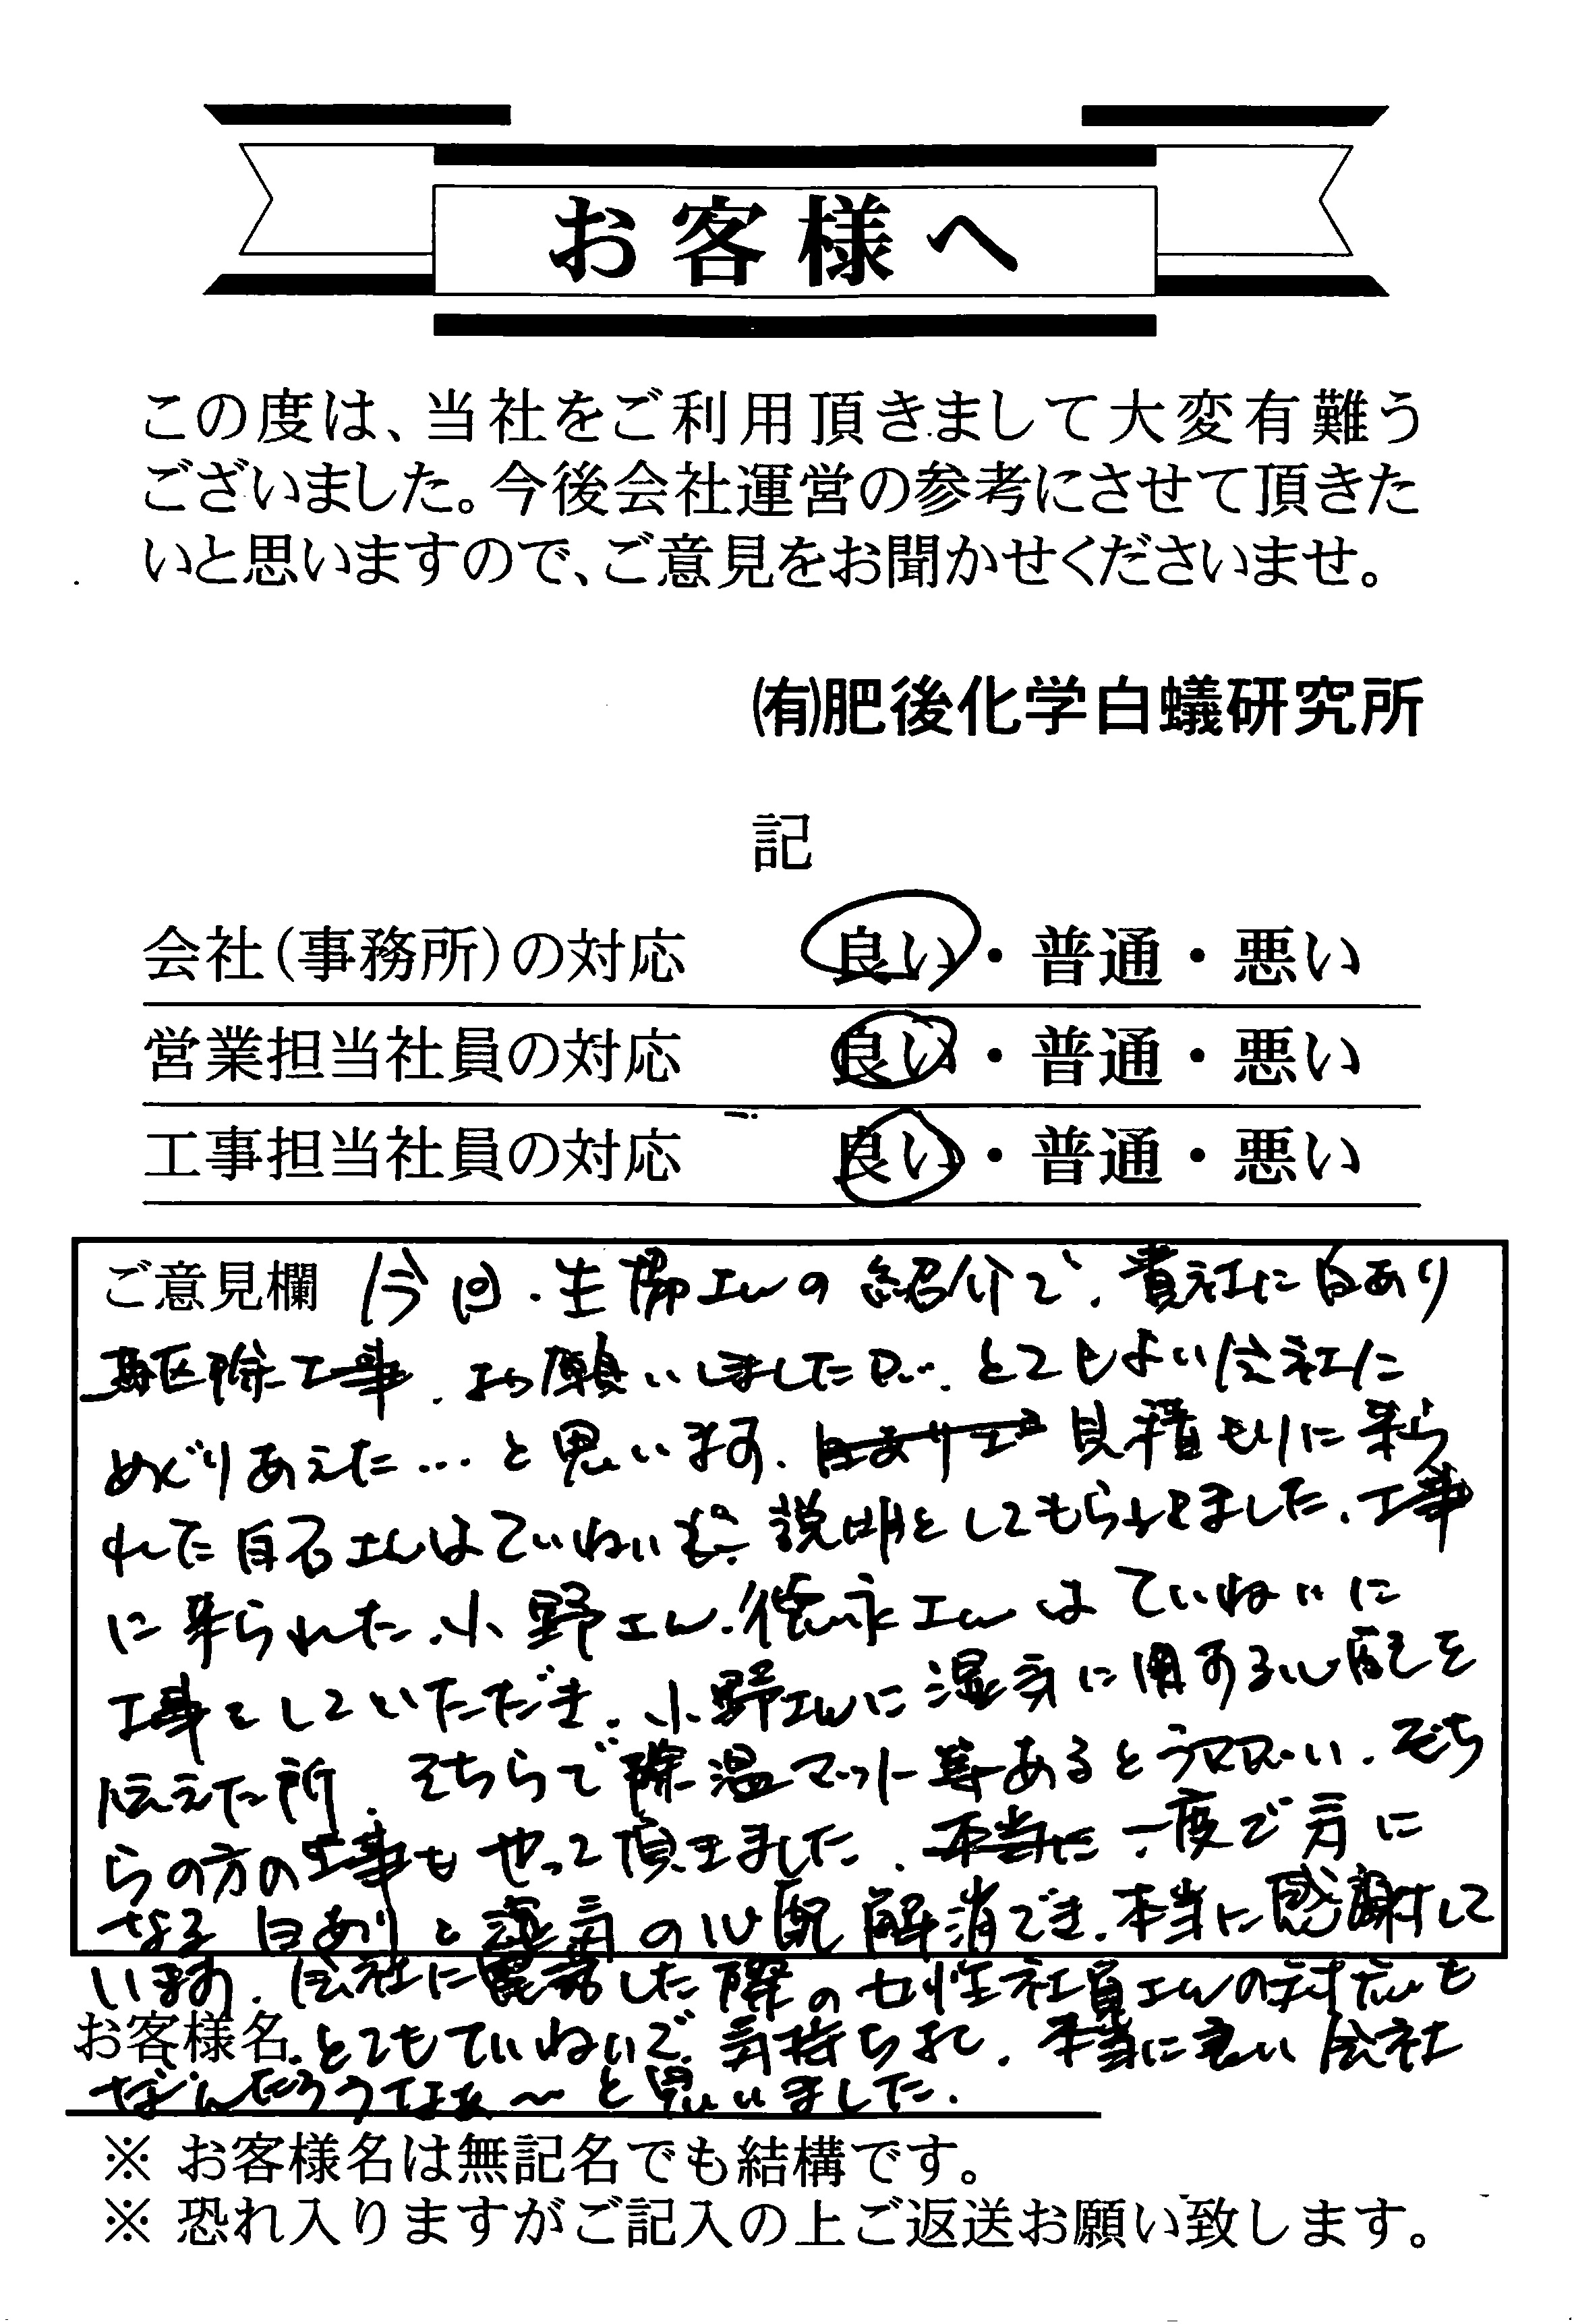 お客様へ
この度は、当社をご利用頂きまして大変有難う
ございました。今後会社運営の参考にさせて頂きた
いと思いますので、ご意見をお聞かせくださいませ。
㈲肥後化学白蟻研究所
記
会社(事務所)の対応 良い・普通・悪い
営業担当社員の対応 良い・普通・悪い
工事担当社員の対応 良い・普通・悪い
ご意見欄 今回.生協さんの紹介で、貴社に白あり
駆除工事、お願いしましたが、とてもよい会社に
めぐりあえた…と思います。見積もりに来ら
れた白石さんはていねいに説明をしてもらえました、工事
に来られた、小野さん、徳永さんはていねいに
工事をしていただき、小野さんに湿気に関する心配を
伝えた所、そちらで除湿マット等あるとうかがい、そち
らの方の工事もやって頂きました、一度で方に
なる白ありと湿気の心配解消でき、本当に感謝して
います、会社に電話した際の女性社員さんの対応も
お客様名 とてもていねいで、気持ちよく、本当に良い会社
なんだろうなぁ〜と思いました.
※ お客様名は無記名でも結構です。
※ 恐れ入りますがご記入の上ご返送お願い致します。